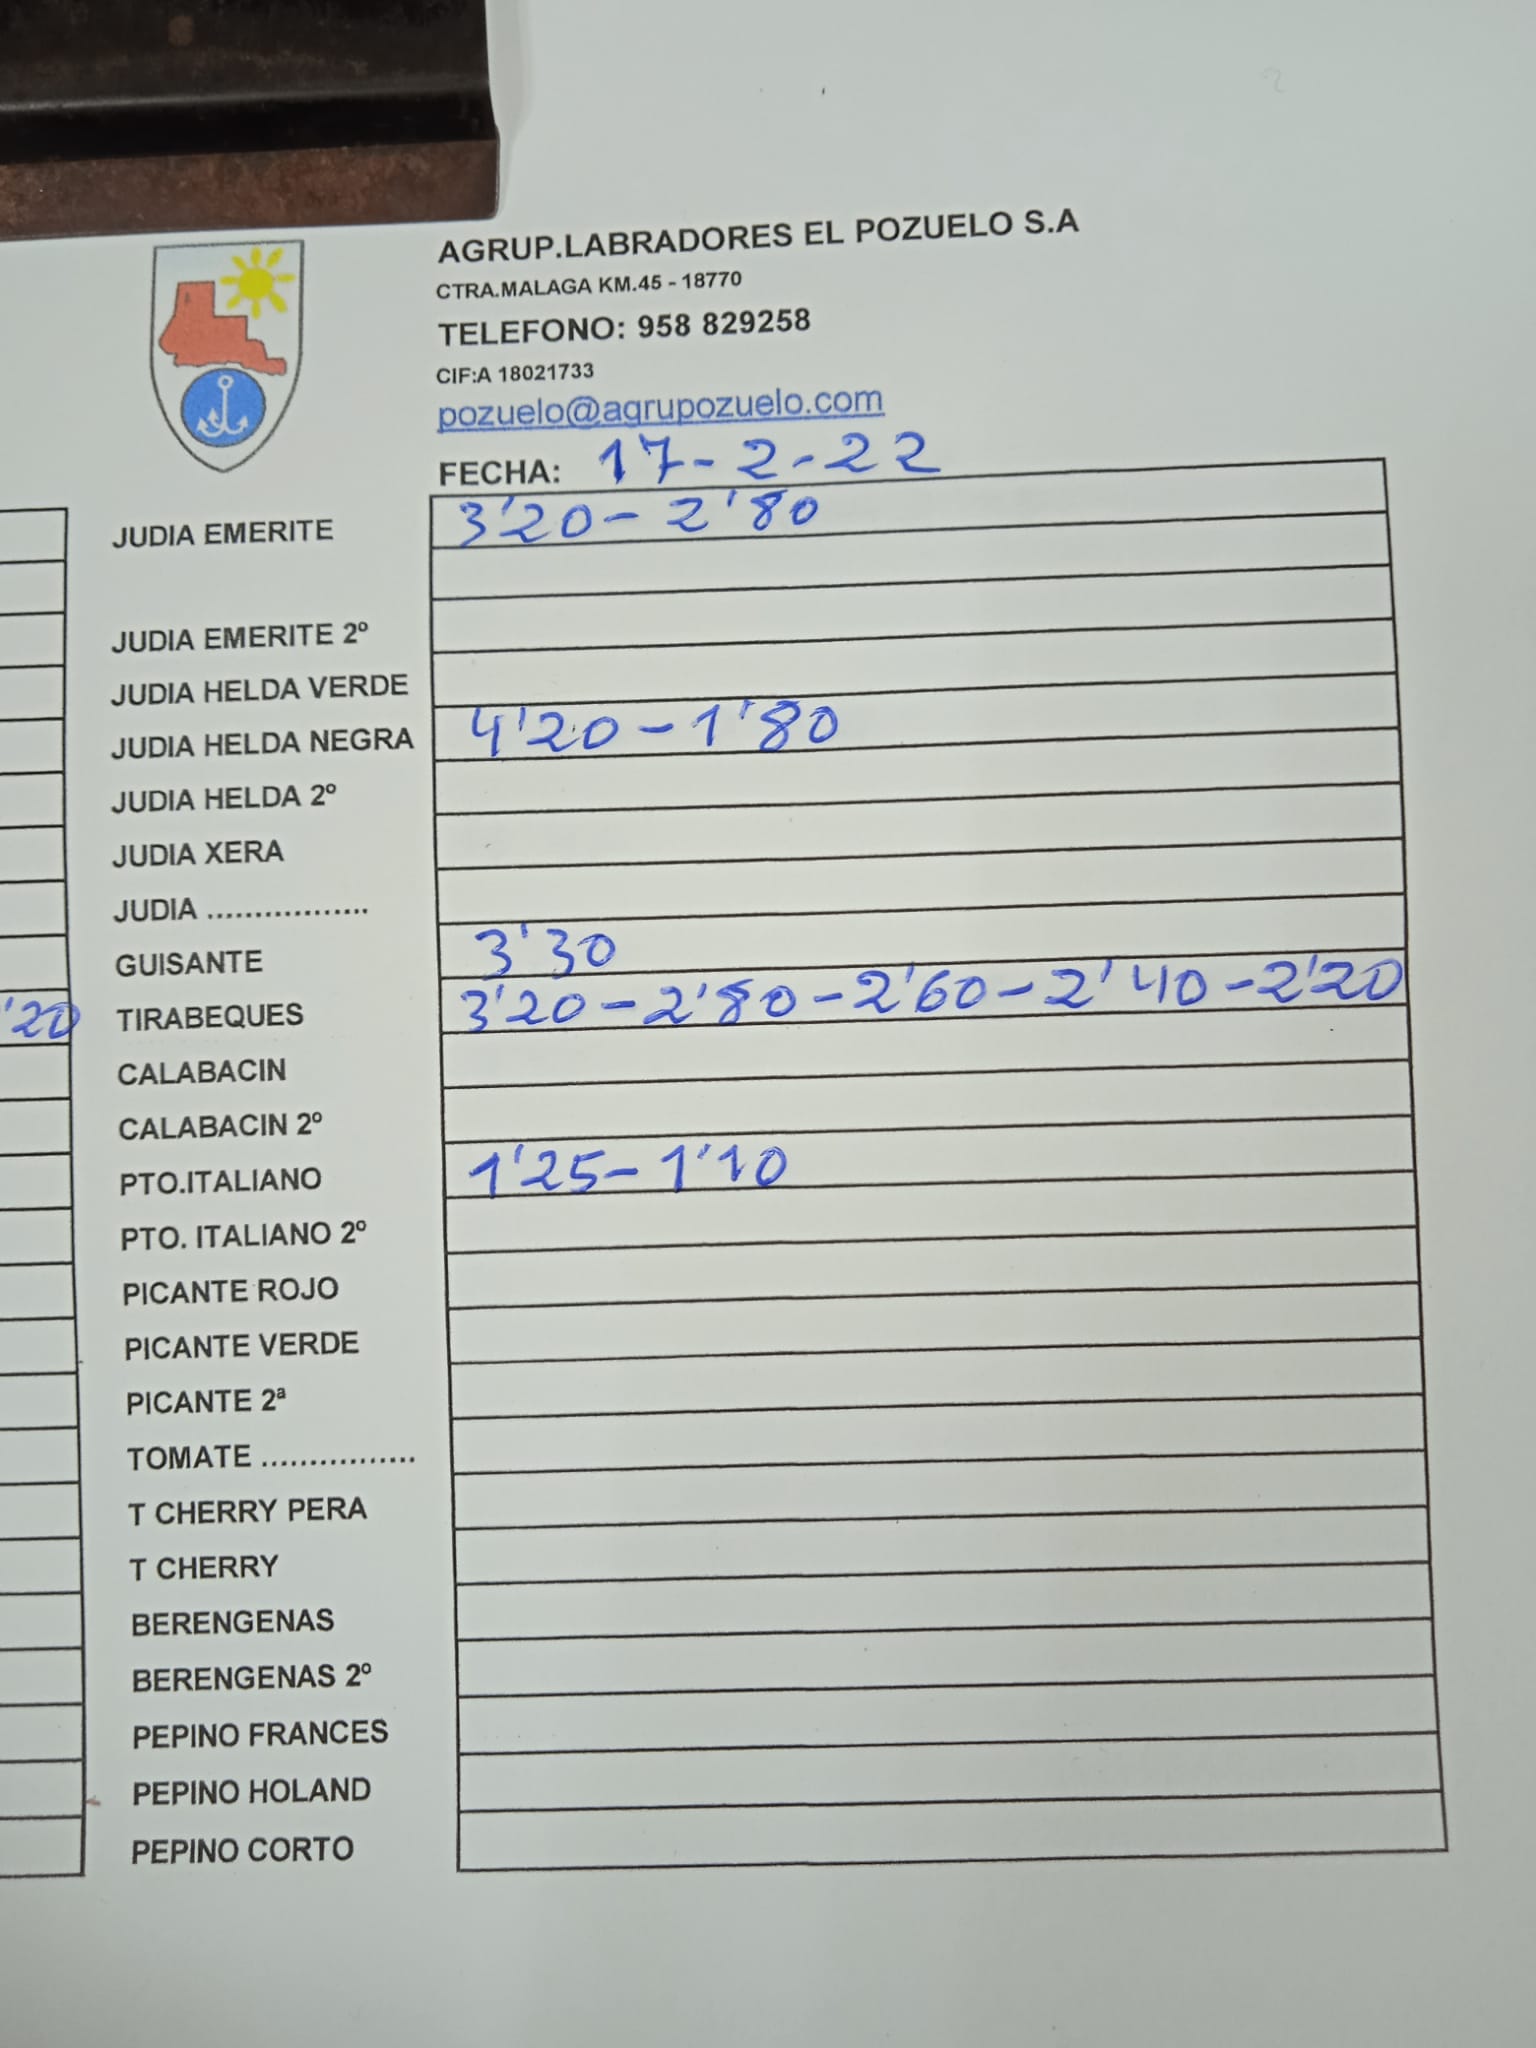 AGRUP.LABRADORES EL POZUELO S.A
CTRA.MALAGA KM.45 - 18770
TELEFONO: 958 829258
CIF:A 18021733
pozuelo@agrupozuelo.com
FECHA: 17-2-22
JUDIA EMERITE 3'20-2'80
JUDIA EMERITE 2º
JUDIA HELDA VERDE
JUDIA HELDA NEGRA 4'20-1'80
JUDIA HELDA 2º
JUDIA XERA
JUDIA .................
GUISANTE 3'30
'20 TIRABEQUES 3'20-2'80-2'60-2'40-2'20
CALABACIN
CALABACIN 2º
PTO.ITALIANO 1'25-1'10
PTO. ITALIANO 2º
PICANTE ROJO
PICANTE VERDE
PICANTE 2ª
TOMATE ................
T CHERRY PERA
T CHERRY
BERENGENAS
BERENGENAS 2º
PEPINO FRANCES
PEPINO HOLAND
PEPINO CORTO